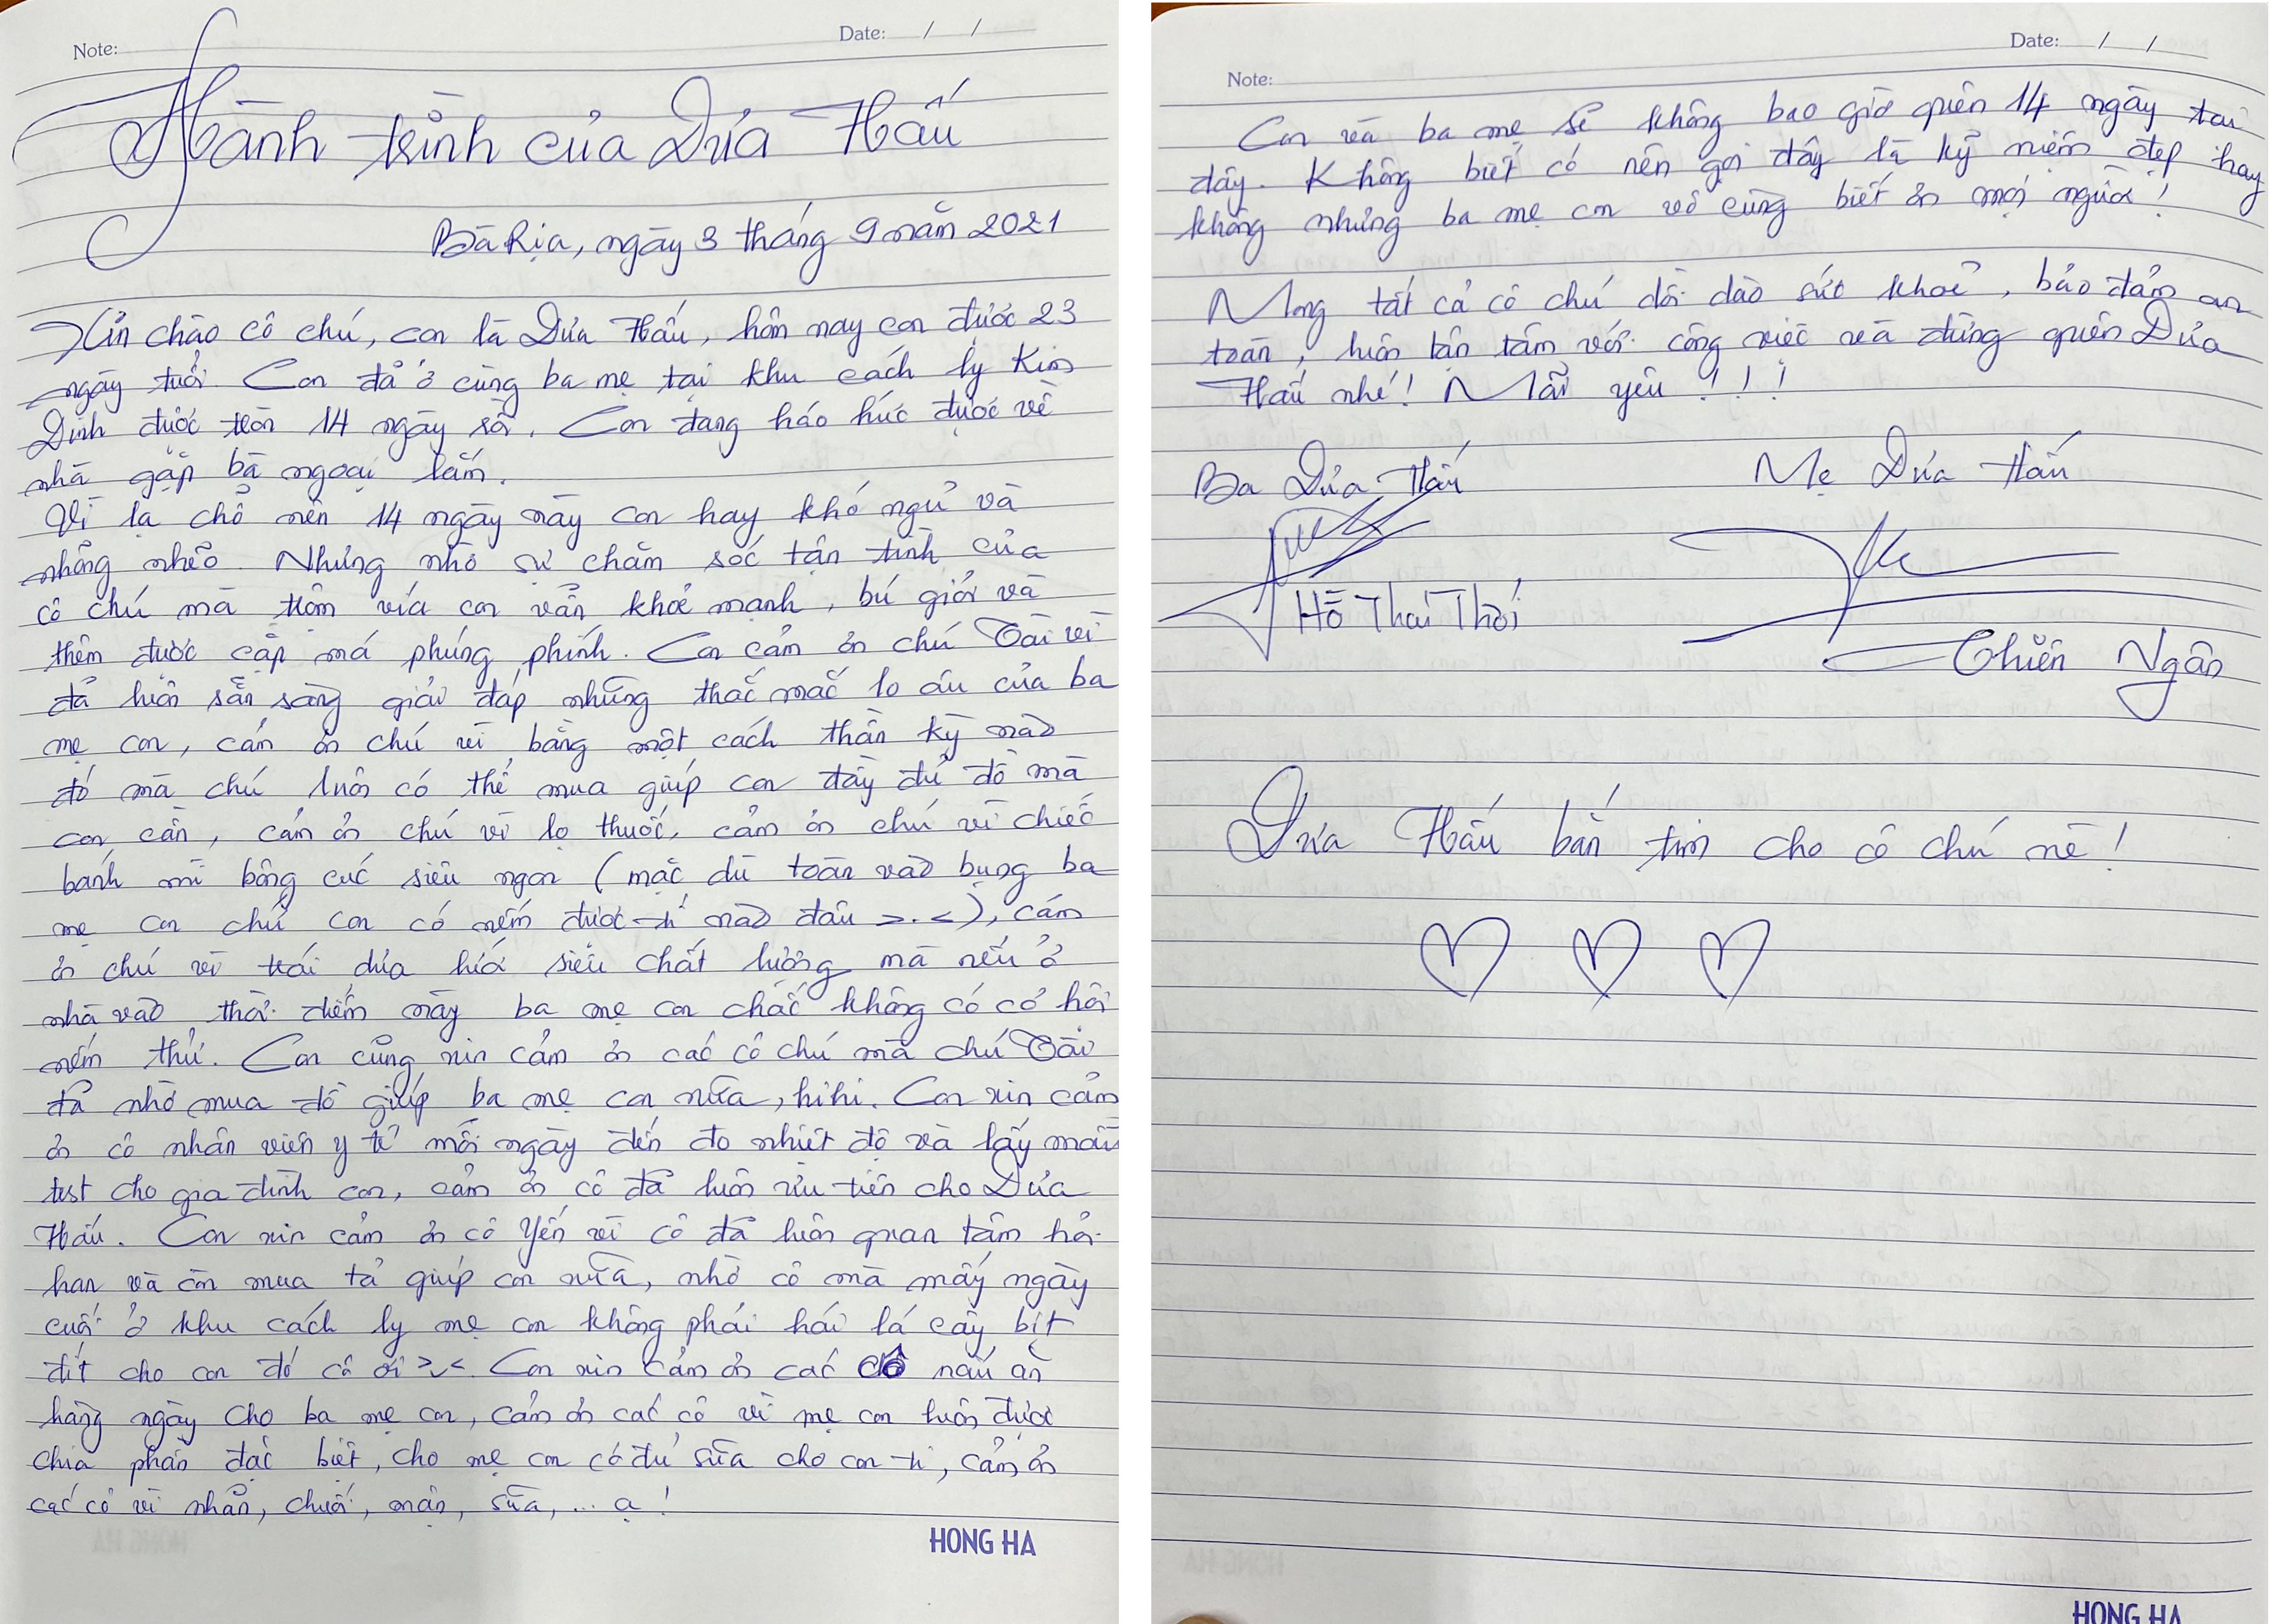 Note:
Date: / /
Hành trình của Dưa Hấu
Bà Rịa, ngày 3 tháng 9 năm 2021
Xin chào cô chú, con là Dưa Hấu, hôm nay con được 23
ngày tuổi. Con đã ở cùng ba mẹ tại khu cách ly Kim
Dinh được tròn 14 ngày rồi. Con đang háo hức được về
nhà gặp bà ngoại lắm.
Vì lạ chỗ nên 14 ngày này con hay khó ngủ và
nhõng nhẽo. Nhưng nhờ sự chăm sóc tận tình của
cô chú mà trộm vía con vẫn khoẻ mạnh, bú giỏi và
thêm được cặp má phúng phính. Con cảm ơn chú Tài vì
đã luôn sẵn sàng giải đáp những thắc mắc lo âu của ba
mẹ con, cảm ơn chú vì bằng một cách thần kỳ nào
đó mà chú luôn có thể mua giúp con đầy đủ đồ mà
con cần, cảm ơn chú vì lọ thuốc, cảm ơn chú vì chiếc
bánh mì bông cúc siêu ngon (mặc dù toàn vào bụng ba
mẹ con chứ con có nếm được tí nào đâu >.<), cảm
ơn chú vì trái dưa hấu siêu chất lượng mà nếu ở
nhà vào thời điểm này ba mẹ con chắc không có cơ hội
nếm thử. Con cũng xin cảm ơn các cô chú mà chú Tài
đã nhờ mua đồ giúp ba mẹ con nữa, hihi. Con xin cảm
ơn cô nhân viên y tế mỗi ngày đến đo nhiệt độ và lấy mẫu
test cho gia đình con, cảm ơn cô đã luôn ưu tiên cho Dưa
Hấu. Con xin cảm ơn cô Yến vì cô đã luôn quan tâm hỏi
han và còn mua tả giúp con nữa, nhờ cô mà mấy ngày
cuối ở khu cách ly mẹ con không phải hái lá cây bịt
đít cho con đó cô ơi >.< Con xin cảm ơn các cô nấu ăn
hàng ngày cho ba mẹ con, cảm ơn các cô vì mẹ con luôn được
chia phần đặc biệt, cho mẹ con có đủ sữa cho con ti, cảm ơn
các cô vì nhãn, chuối, mận, sữa, ... ạ!
HONG HA
Note:
Date: / /
Con và ba mẹ sẽ không bao giờ quên 14 ngày tại
đây. Không biết có nên gọi đây là kỷ niệm đẹp hay
không nhưng ba mẹ con vô cùng biết ơn mọi người!
Mong tất cả cô chú dồi dào sức khoẻ, bảo đảm an
toàn, luôn tận tâm với công việc và đừng quên Dưa
Hấu nhé! Mãi yêu!!!
Ba Dưa Hấu
Mẹ Dưa Hấu
Hồ Thái Thời
Thiên Ngân
Dưa Hấu bắn tim cho cô chú nè!
HONG HA